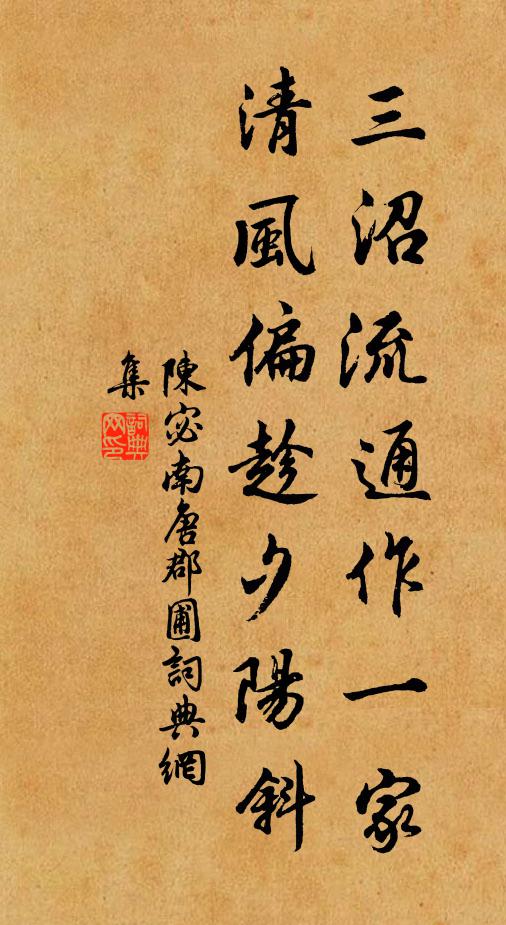 三沼流通作一家
清風偏趁夕陽斜
陳宓南唐郡圃詞典網
集
詞典網印